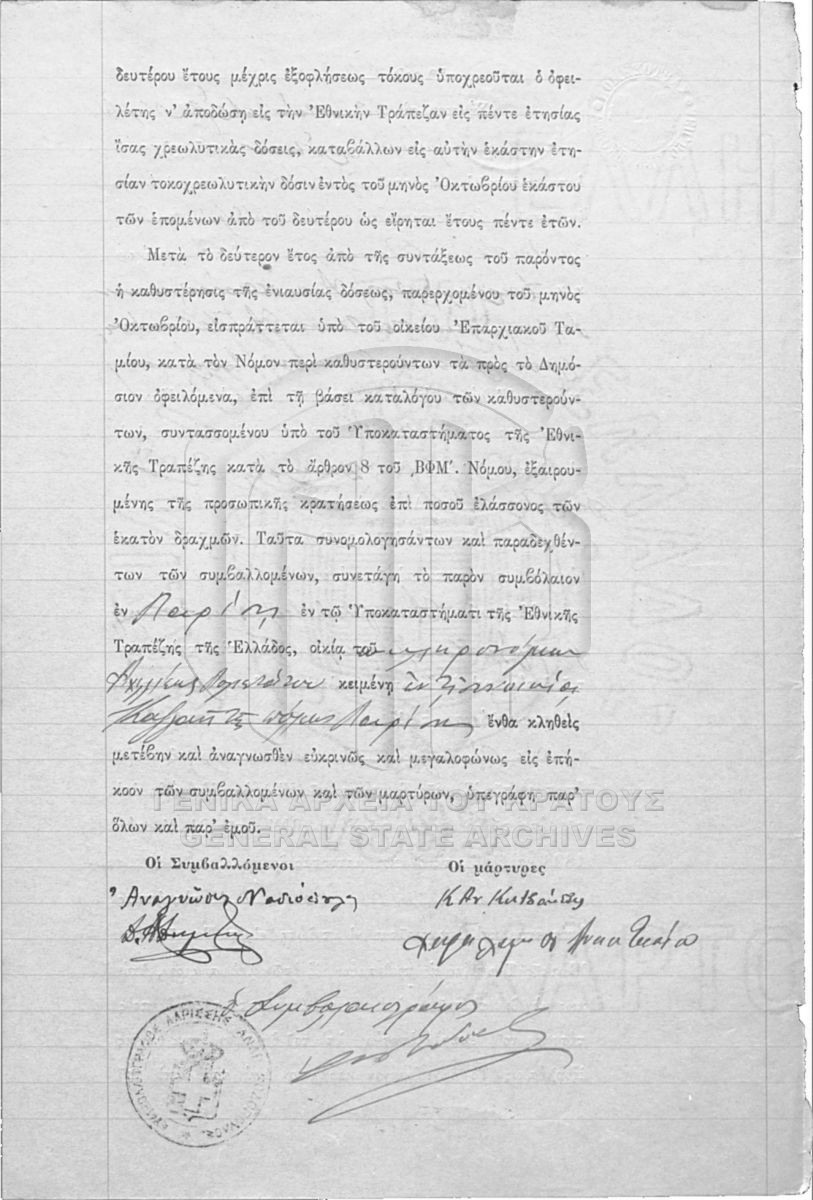 δευτέρου ἔτους μέχρις ἐξοφλήσεως τόκους ὑποχρεοῦται ὁ ὀφει-
λέτης ν' ἀποδώσῃ εἰς τὴν Ἐθνικὴν Τράπεζαν εἰς πέντε ἐτησίας
ἴσας χρεωλυτικὰς δόσεις, καταβάλλων εἰς αὐτὴν ἑκάστην ἐτη-
σίαν τοκοχρεωλυτικὴν δόσιν ἐντὸς τοῦ μηνὸς Ὀκτωβρίου ἑκάστου
τῶν ἑπομένων ἀπὸ τοῦ δευτέρου ὡς εἴρηται ἔτους πέντε ἐτῶν.
Μετὰ τὸ δεύτερον ἔτος ἀπὸ τῆς συντάξεως τοῦ παρόντος
ἡ καθυστέρησις τῆς ἐνιαυσίας δόσεως, παρερχομένου τοῦ μηνὸς
Ὀκτωβρίου, εἰσπράττεται ὑπὸ τοῦ οἰκείου Ἐπαρχιακοῦ Τα-
μίου, κατὰ τὸν Νόμον περὶ καθυστερούντων τὰ πρὸς τὸ Δημό-
σιον ὀφειλόμενα, ἐπὶ τῇ βάσει καταλόγου τῶν καθυστερούν-
των, συντασσομένου ὑπὸ τοῦ Ὑποκαταστήματος τῆς Ἐθνι-
κῆς Τραπέζης κατὰ τὸ ἄρθρον 8 τοῦ ͵ΒΦΜ΄. Νόμου, ἐξαιρου-
μένης τῆς προσωπικῆς κρατήσεως ἐπὶ ποσοῦ ἐλάσσονος τῶν
ἑκατὸν δραχμῶν. Ταῦτα συνομολογησάντων καὶ παραδεχθέν-
των τῶν συμβαλλομένων, συνετάγη τὸ παρὸν συμβόλαιον
ἐν Λαρίσῃ ἐν τῷ Ὑποκαταστήματι τῆς Ἐθνικῆς
Τραπέζης τῆς Ἑλλάδος, οἰκίᾳ τοῦ κληρονόμων
κειμένῃ
πόλεως Λαρίσης ἔνθα κληθεὶς
μετέβην καὶ ἀναγνωσθὲν εὐκρινῶς καὶ μεγαλοφώνως εἰς ἐπή-
κοον τῶν συμβαλλομένων καὶ τῶν μαρτύρων, ὑπεγράφη παρ'
ὅλων καὶ παρ' ἐμοῦ.
ΓΕΝΙΚΑ ΑΡΧΕΙΑ ΤΟΥ ΚΡΑΤΟΥΣ
GENERAL STATE ARCHIVES
Οἱ Συμβαλλόμενοι
Οἱ μάρτυρες
Ὁ Συμβολαιογράφος